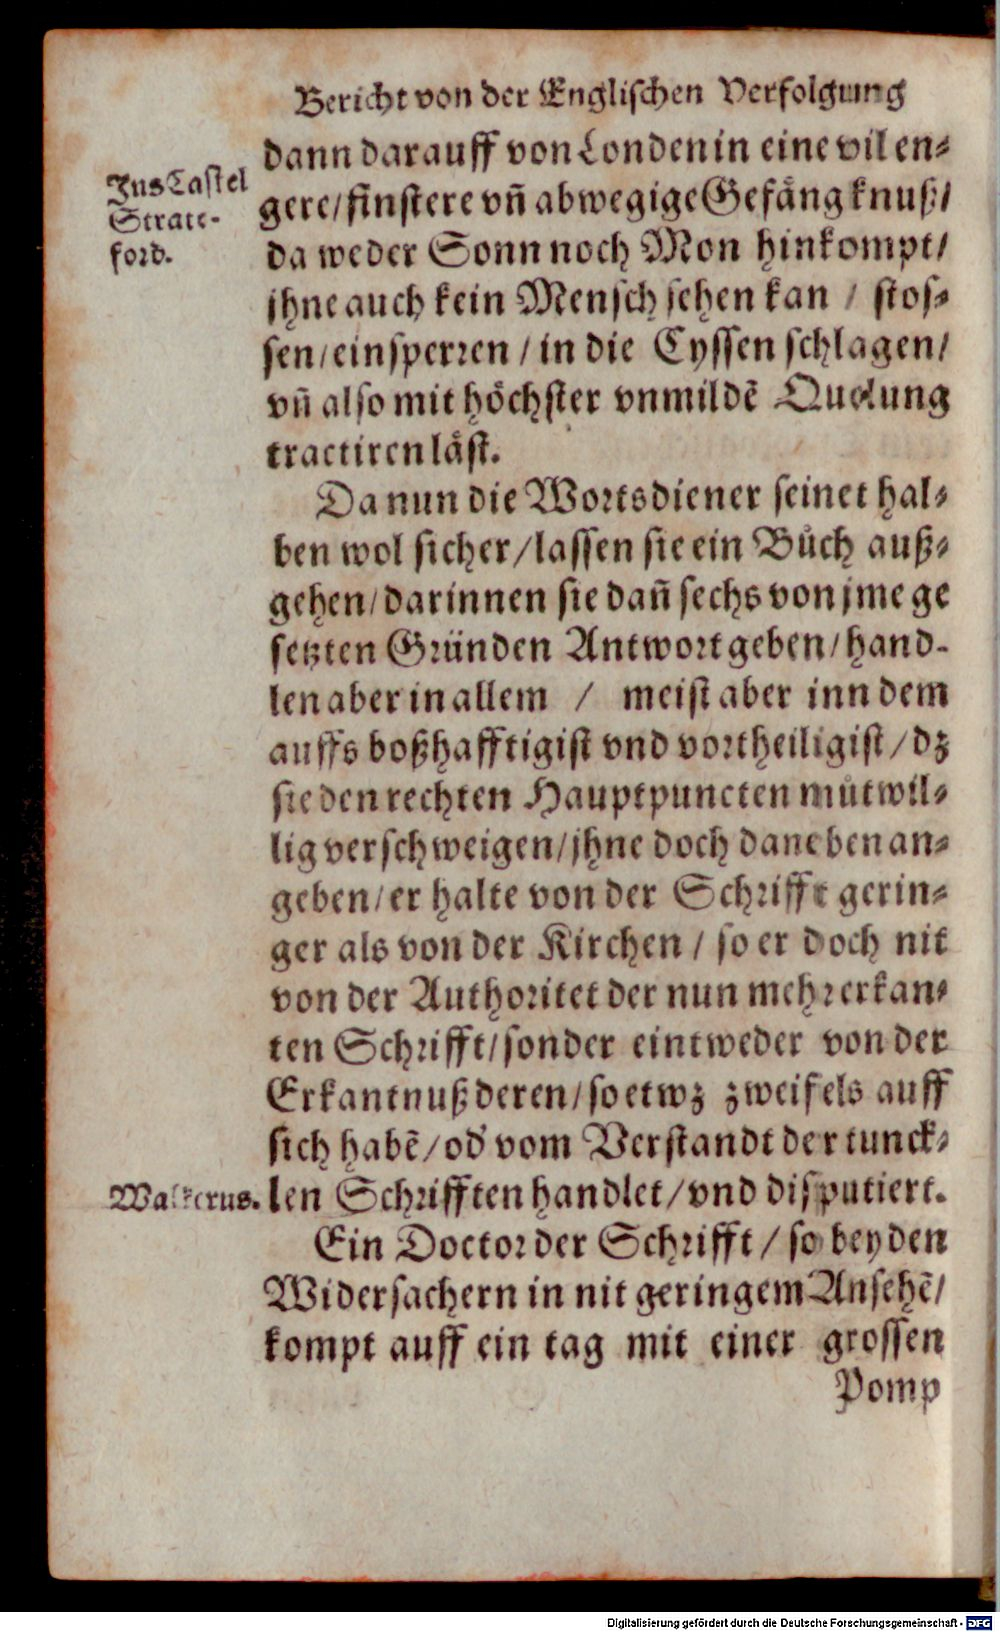 Bericht von der Englischen Verfolgung
dann darauff von Londen in eine vil en⸗
Jns Castel
Strate-
ford.
gere/finstere vñ abwegige Gefångknuß/
da weder Sonn noch Mon hinkompt/
jhne auch kein Mensch sehen kan / stos⸗
sen/einsperren/in die Eyssen schlagen/
vñ also mit hőchster vnmildē Quelung
tractiren låst.
Da nun die Wortsdiener seinet hal⸗
ben wol sicher/lassen sie ein Bůch auß⸗
gehen/darinnen sie dañ sechs von jme ge
setzten Gründen Antwort geben/hand-
len aber in allem / meist aber inn dem
auffs boßhafftigist vnd vortheiligist/dz
sie den rechten Hauptpuncten můtwil⸗
lig verschweigen/jhne doch daneben an⸗
geben/er halte von der Schrifft gerin⸗
ger als von der Kirchen / so er doch nit
von der Authoritet der nun mehr erkan⸗
ten Schrifft/sonder eintweder von der
Erkantnuß deren/so etwz zweifels auff
sich habē/od' vom Verstandt der tunck⸗
Walkerus.
len Schrifften handlet/vnd disputiert.
Ein Doctor der Schrifft/so bey den
Widersachern in nit geringem Ansehē/
kompt auff ein tag mit einer grossen
Pomp
Digitalisierung gefördert durch die Deutsche Forschungsgemeinschaft - DFG